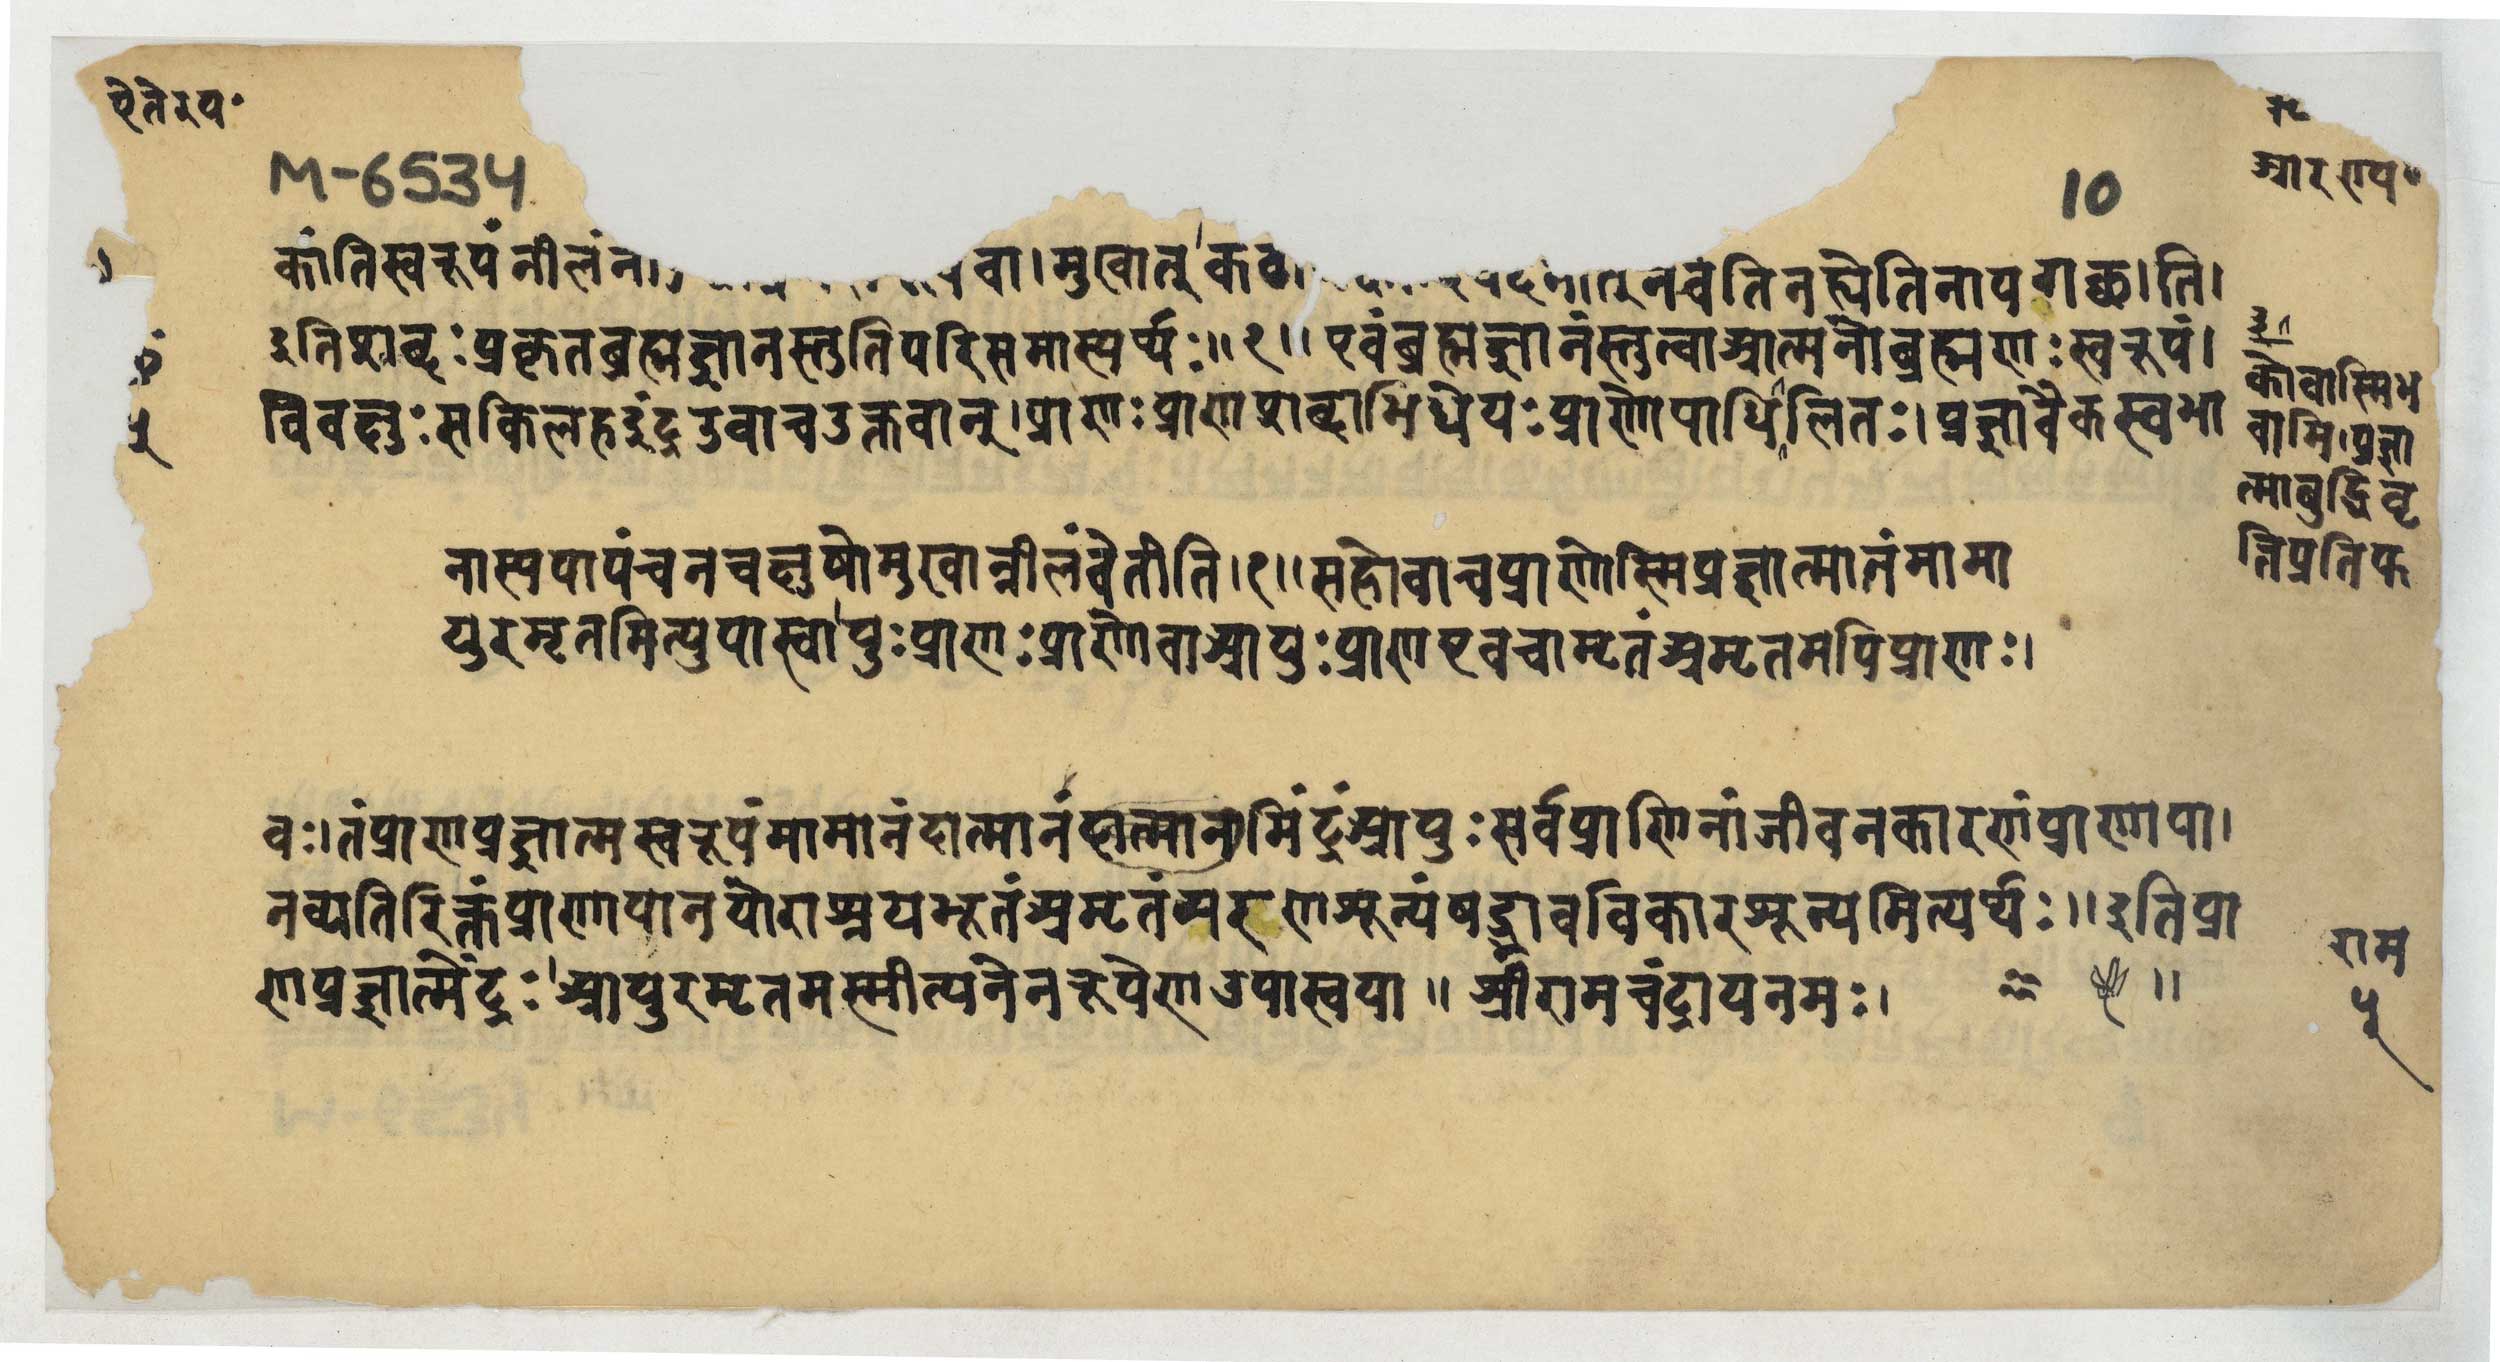 ऐतेरेय॰
M-6534
10
आरण्य॰
कांतिस्वरूपं नीलं न वा । मुखात् नचेतिनव्येतिनापगच्छति ।
इतिशब्दः प्रकृतब्रह्मज्ञानस्तुतिपरिसमाप्त्यर्थः ॥ १ ॥ एवं ब्रह्मज्ञानं स्तुत्वा आत्मनो ब्रह्मणः स्वरूपं ।
विवक्षुः स किल ह इंद्र उवाच उक्तवान् । प्राणः प्राणशब्दाभिधेयः प्राणोपाधि लितः । प्रज्ञा वै कस्वभा
नास्य पापं च न चक्षुषो मुखान्नीलं वेतीति । १ ॥ स होवाच प्राणोस्मि प्रज्ञात्मा तं मामा
युरमृतमित्युपास्वायुः प्राणः प्राणो वा आयुः प्राण एव चामृतं अमृतमपि प्राणः ।
वः । तं प्राणप्रज्ञात्मस्वरूपं मामानंदात्मानं दात्मान मिंद्रं आयुः सर्वप्राणिनां जीवनकारणं प्राणापा ।
नव्यतिरिक्तं प्राणापानयोराश्रयभूतं अमृतं मरणशून्यं षड्भावविकारशून्यमित्यर्थः ॥ इति प्रा
णप्रज्ञात्मेंद्रः आयुरमृतमस्मीत्यनेन रूपेण उपास्वया ॥ श्रीरामचंद्राय नमः । ॥
को वास्मि भ
वामि । प्रज्ञा
त्मा बुद्धिवृ
त्तिप्रतिफ
राम
५